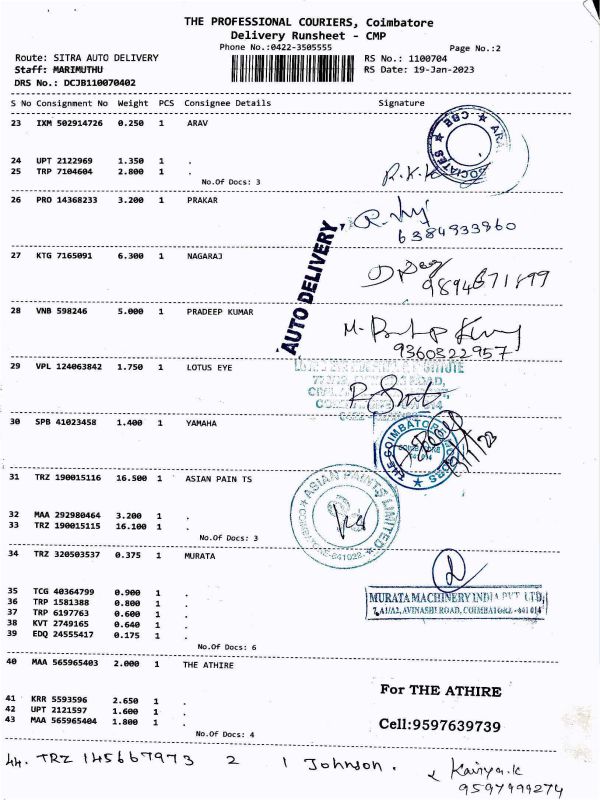 THE PROFESSIONAL COURIERS, Coimbatore
Delivery Runsheet - CMP
Phone No.:0422-3505555
Page No.:2
Route: SITRA AUTO DELIVERY
RS No.: 1100704
Staff: MARIMUTHU
RS Date: 19-Jan-2023
DRS No.: DCJB110070402
S No Consignment No Weight PCS Consignee Details Signature
23 IXM 502914726 0.250 1 ARAV
24 UPT 2122969 1.350 1 .
25 TRP 7104604 2.800 1 .
R.K.K
No.Of Docs: 3
26 PRO 14368233 3.200 1 PRAKAR
6384933960
AUTO DELIVERY
27 KTG 7165091 6.300 1 NAGARAJ
28 VNB 598246 5.000 1 PRADEEP KUMAR
9360322957
29 VPL 124063842 1.750 1 LOTUS EYE
30 SPB 41023458 1.400 1 YAMAHA
31 TRZ 190015116 16.500 1 ASIAN PAIN TS
ASIAN PAINTS LIMITED
32 MAA 292980464 3.200 1 .
33 TRZ 190015115 16.100 1 .
No.Of Docs: 3
34 TRZ 320503537 0.375 1 MURATA
35 TCG 40364799 0.900 1 .
36 TRP 1581388 0.800 1 .
37 TRP 6197763 0.600 1 .
38 KVT 2749165 0.640 1 .
39 EDQ 24555417 0.175 1 .
MURATA MACHINERY INDIA PVT. LTD,
AVINASHI ROAD, COIMBATORE - 641 014
No.Of Docs: 6
40 MAA 565965403 2.000 1 THE ATHIRE
41 KRR 5593596 2.650 1 .
42 UPT 2121597 1.600 1 .
43 MAA 565965404 1.800 1 .
For THE ATHIRE
Cell:9597639739
No.Of Docs: 4
44. TRZ 145667973 2 1 Johnson.
9597999274